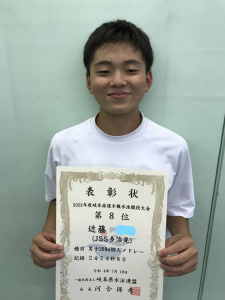 表彰状
2022年度岐阜県選手権水泳競技大会
第8位
近藤
(JSS多治見)
種目 男子200m個人メドレー
記録 2分24秒80
令和4年7月18日
一般社団法人岐阜県水泳連盟
会長 河合保孝